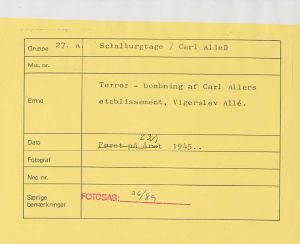 Gruppe 27. A. Schalburgtage / Carl Alleß
Mus. nr.
Terror - bombning af Carl Allers
Emne etablissement, Vigerslev Allé.
23/1
Dato Først på året 1945..
Fotograf
Neg. nr.
Særlige bemærkninger FOTOSAG: 26/89